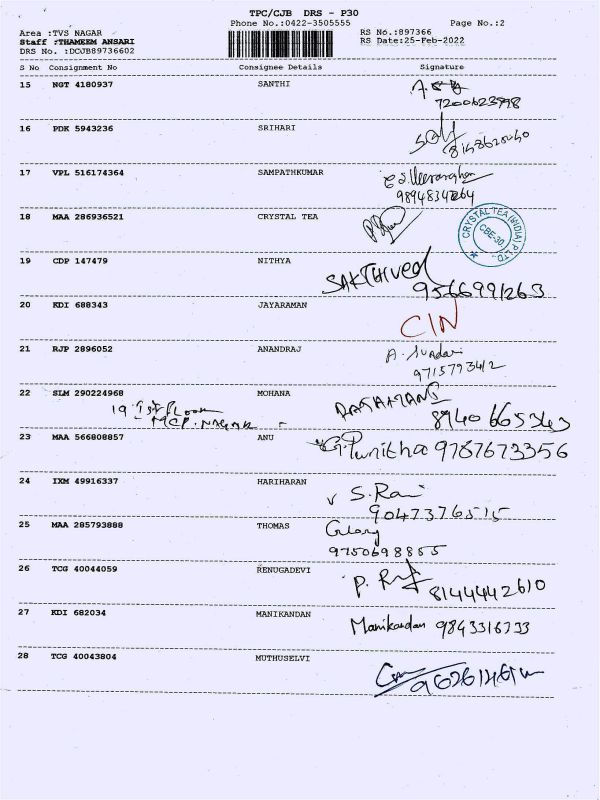 TPC/CJB DRS - P30
Phone No.:0422-3505555
Page No.:2
Area :TVS NAGAR
Staff :THAMEEM ANSARI
DRS No. :DCJB89736602
RS No.:897366
RS Date:25-Feb-2022
S No Consignment No Consignee Details Signature
15 NGT 4180937 SANTHI
7200623998
16 PDK 5943236 SRIHARI
17 VPL 516174364 SAMPATHKUMAR
18 MAA 286936521 CRYSTAL TEA
CRYSTAL TEA (INDIA) P. LTD.
CBE-30.
19 CDP 147479 NITHYA SAKTHIVEL
9566991263
20 KDI 688343 JAYARAMAN
CIN
21 RJP 2896052 ANANDRAJ A. Sundari
9715793412
22 SLM 290224968 MOHANA
19, 1st FLOOR
MCP. NAGAR
8940665343
23 MAA 566808857 ANU G. Punitha 9787673356
24 IXM 49916337 HARIHARAN
S. Rani
9047376515
25 MAA 285793888 THOMAS
9750698855
26 TCG 40044059 RENUGADEVI
8144442610
27 KDI 682034 MANIKANDAN
Manikandan 9843316733
28 TCG 40043804 MUTHUSELVI